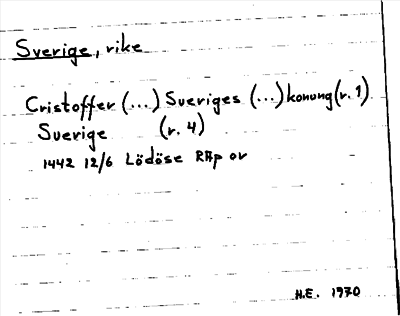 Sverige, rike
Cristoffer (...) Sveriges (...) konung (r. 1)
Sverige (r. 4)
1442 12/6 Lödöse RAp or
H.E. 1970